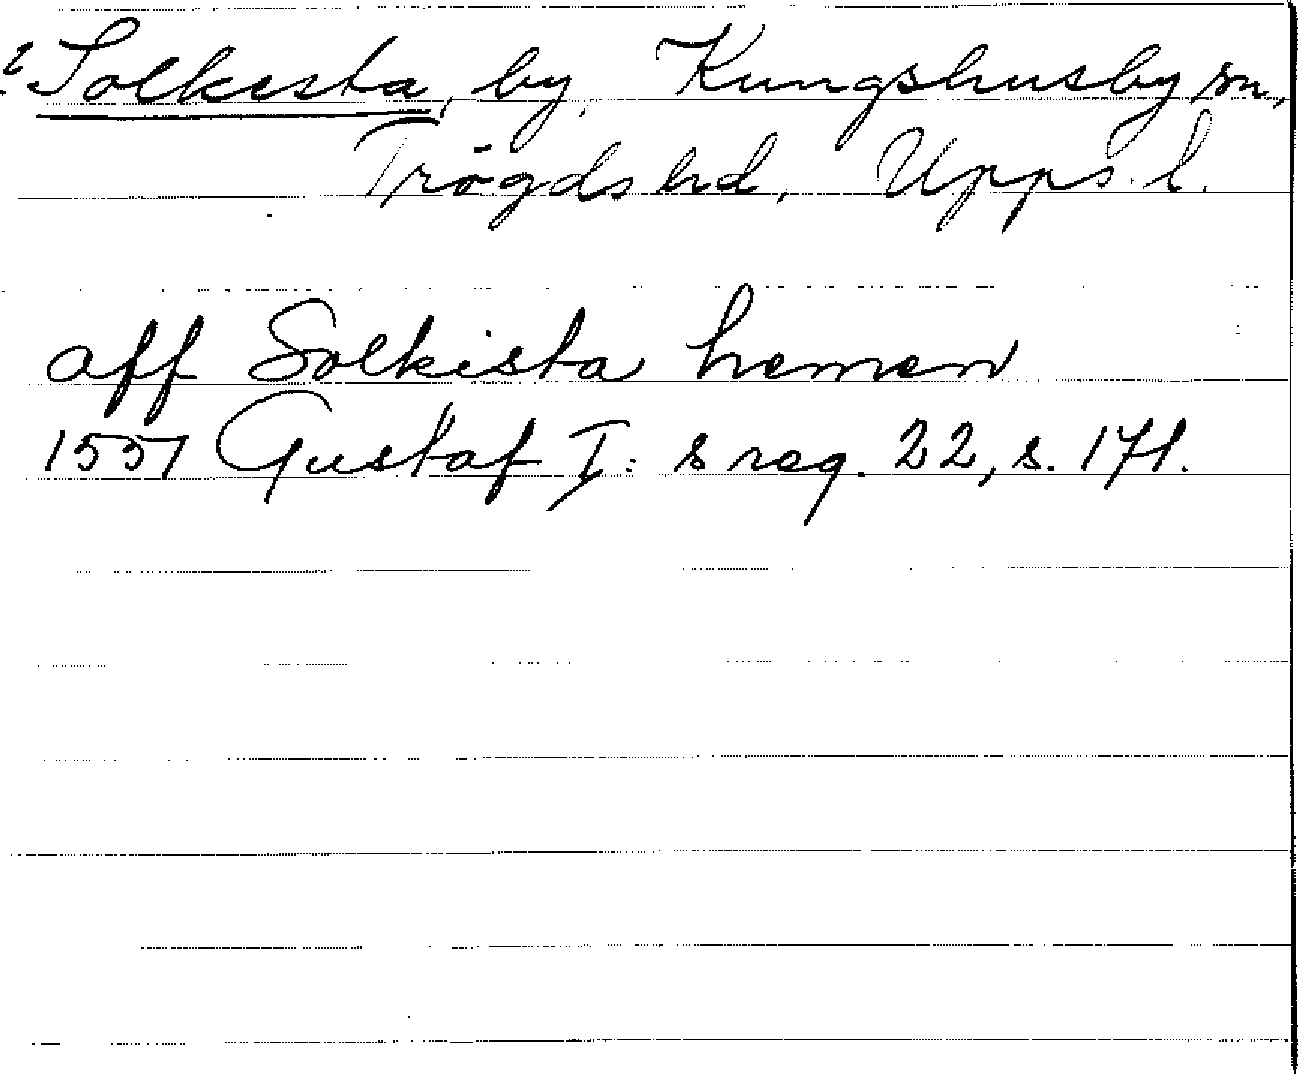 ? Solkesta, by, Kungshusby sn,
Trögds hd, Upps. l.
aff Solkista hemen
1551 Gustaf I:s reg. 22, s. 171.